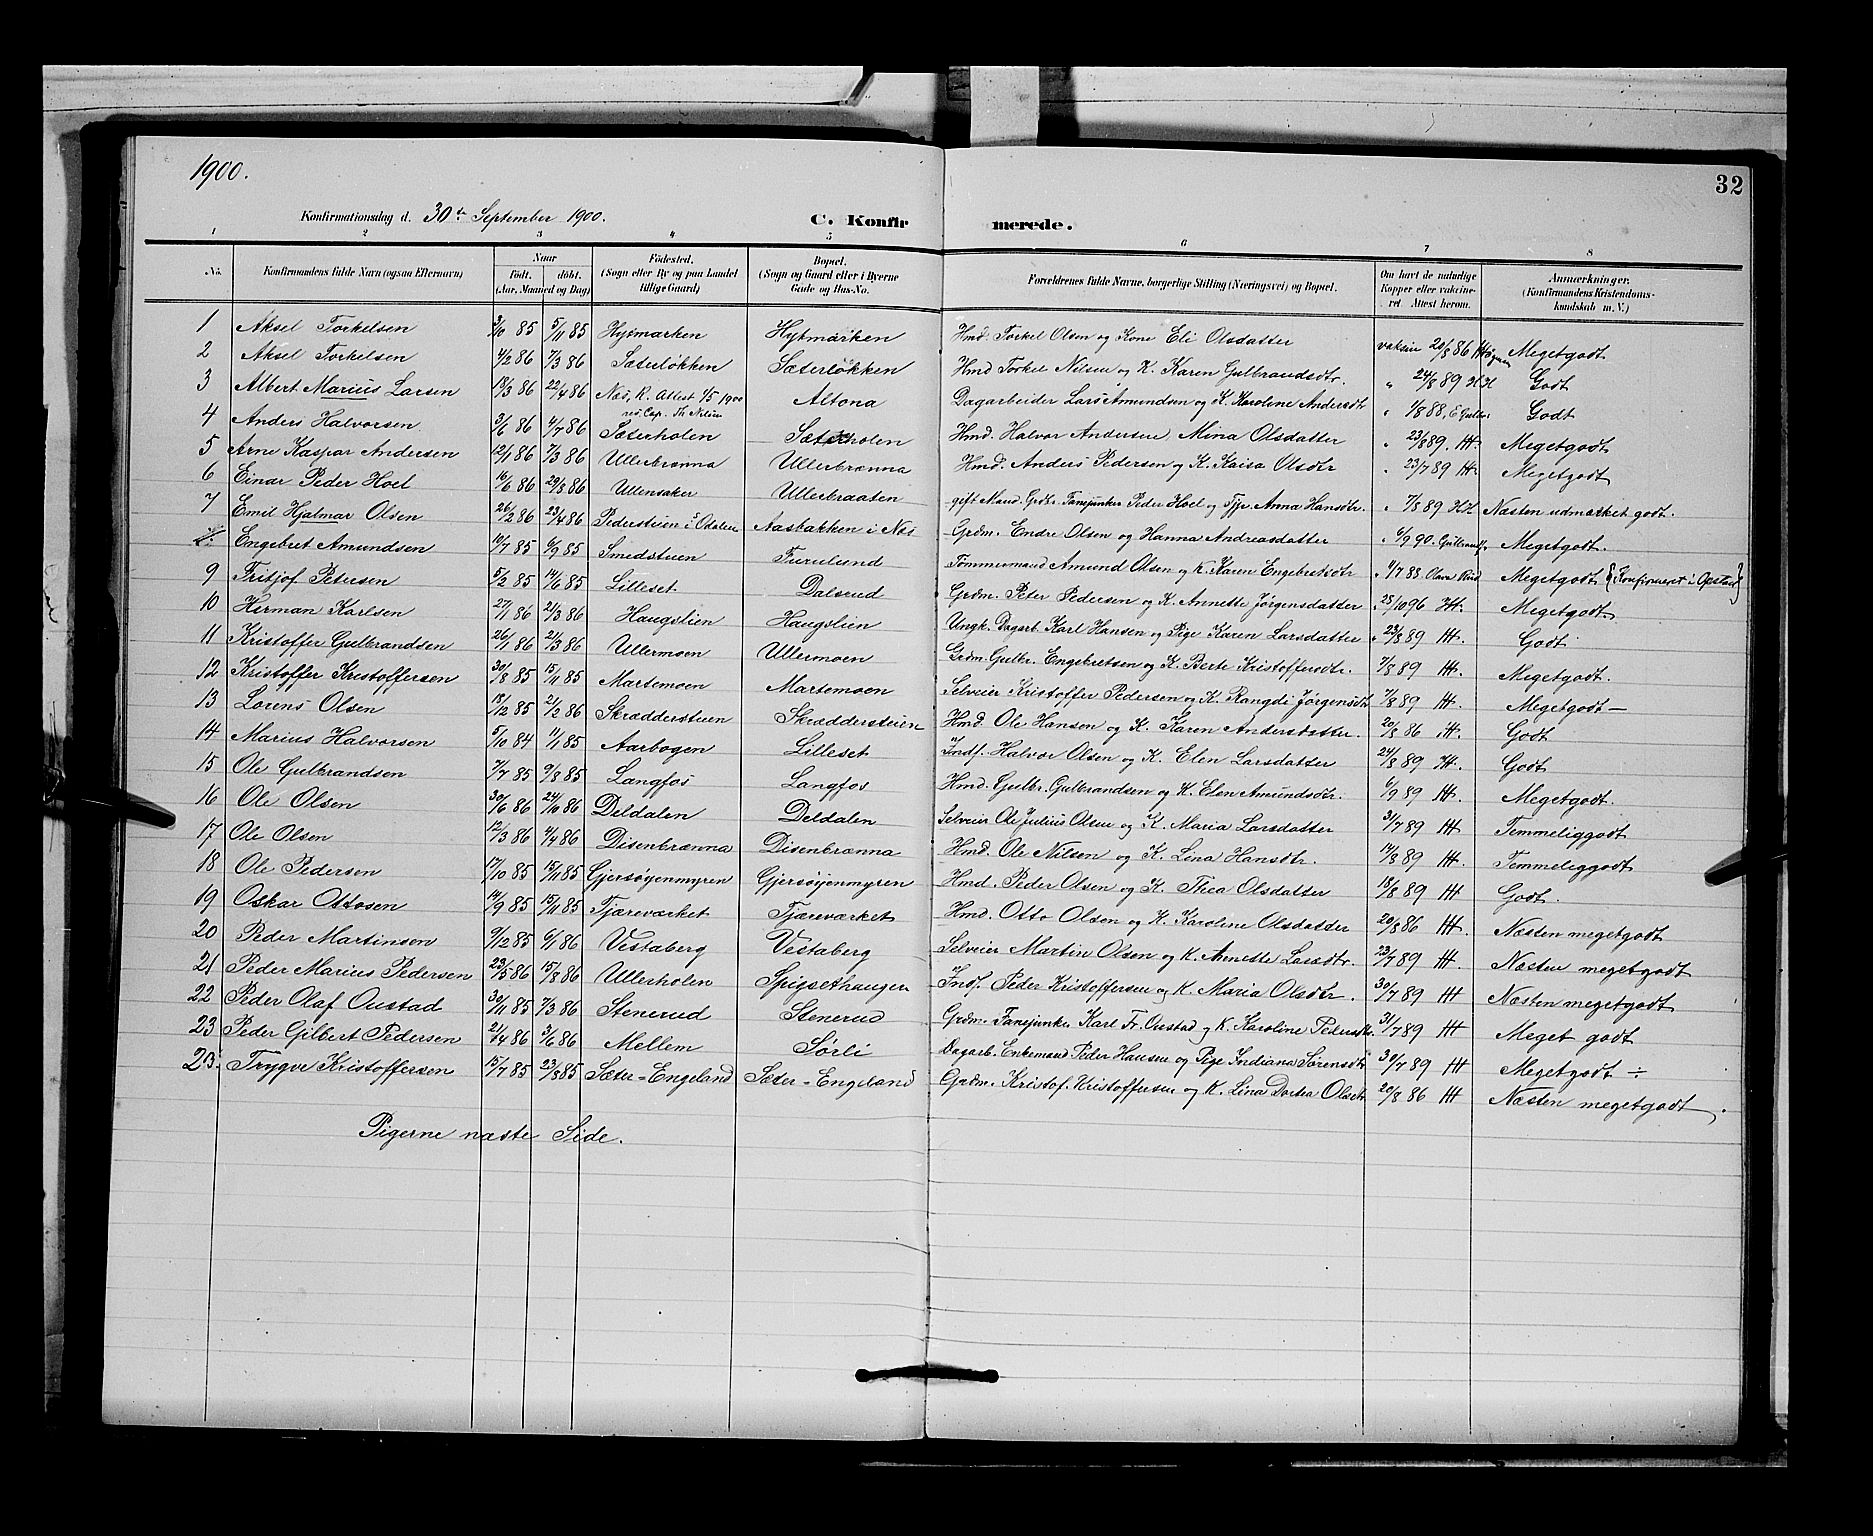 1900.
32
Konfirmationsdag d. 30te September 1900.
C. Konfirmerede.
1 2 3 4 5 6 7 8
No. Konfirmandens fulde Navn (ogsaa Efternavn) Naar født, døbt. (Aar, Maaned og Dag) Fødested. (Sogn eller By og paa Landet tillige Gaard) Bopæl. (Sogn og Gaard eller i Byerne Gade og Hus-No. Forældrenes fulde Navne, borgerlige Stilling (Næringsvei) og Bopæl. Om havt de naturlige Kopper eller vakcineret. Attest herom. Anmærkninger. (Konfirmandens Kristendomskundskab m. V.)
1 Aksel Torkelsen 3/10 85 5/11 85 Hytmarken Hytmarken Hmd. Torkel Olsen og Kone Eli Olsdatter vaksin 20/8 86 Megetgodt
2 Aksel Torkelsen 4/2 86 7/3 86 Sæterløkken Sæterløkken Hmd Torkel Nilsen og K. Karen Gulbrandsdtr. " 24/8 89 HH Godt
3 Albert Marius Larsen 18/3 86 22/4 86 Nes, R. Attest 1/5 1900 res. Cap. Th. Nilsen Altona Dagarbeider Lars Amundsen og K. Karoline Andersdtr " 1/8 88, E Gulbr. Godt
4 Anders Halvorsen 3/6 86 4/7 86 Sæterholen Sæterholen Hmd. Halvor Andersen, Mina Olsdatter " 23/8 89. HH. Megetgodt
5 Arne Kaspar Andersen 12/1 86 7/3 86 Ullerbrænna Ullerbrænna Hmd. Anders Pedersen og K. Kaisa Olsdtr " 23/7 89 HH. Megetgodt
6 Einar Peder Hoel 16/6 86 29/8 86 Ullensaker Ullerbraaten gift Mand. Grdbr. Fanejunker Peder Hoel og Tjp. Anna Hansdtr. " 7/8 89 HH. Næsten udmærket godt.
7 Emil Hjalmar Olsen 26/2 86 23/4 86 Pederstuen i S Odalen Aasbakken i Nes Grdm. Endre Olsen og Hanna Andreasdatter " 6/9 90. Gulbrands. Megetgodt.
Engebret Amundsen 10/7 85 6/9 85 Smedstuen Furulund Tømmermand Amund Olsen og K. Karen Engebretsdtr " 4/7 88 Olava Rud Megetgodt {Konfirmeret i Opstad}
9 Fritjof Petersen 5/2 85 14/6 85 Lilleset Dalsrud Grdm. Peter Pedersen og K. Annette Jørgensdatter " 28/10 96 HH. Megetgodt.
10 Herman Karlsen 27/1 86 21/3 86 Haugslien Haugslien Ungk. Dagarb. Karl Hansen og Pige Karen Larsdatter " 23/8 89 HH. Godt
11 Kristoffer Gulbrandsen 26/1 86 21/3 86 Ullermoen Ullermoen Grdm. Gulbr. Engebretsen og K. Berte Kristoffersdtr. 7/8 89 HH. Megetgodt.
12 Kristoffer Kristoffersen 30/8 85 15/11 85 Martemoen Martemoen Selveier Kristoffer Pedersen og K. Rangdi Jørgensdtr 7/8 89 HH. Megetgodt —
13 Lorens Olsen 18/12 85 21/2 86 Skrædderstuen Skrædderstuen Hmd. Ole Hansen og K. Karen Andersdatter. 20/8 86 HH. Godt
14 Marius Halvorsen 5/10 84 11/1 85 Aarbogen Lilleset Indf. Halvor Olsen og K. Elen Larsdatter 24/8 89 HH. Godt
15 Ole Gulbrandsen 7/7 85 9/8 85 Langfos Langfos Hmd. Gulbr. Gulbrandsen og K. Elen Amundsdtr. 6/9 89 HH. Megetgodt.
16 Ole Olsen 30/6 86 24/10 86 Deldalen Deldalen Selveier Ole Julius Olsen og K. Maria Larsdatter 31/7 89 HH. Temmeliggodt
17 Ole Olsen 12/3 86 4/4 86 Disenbrænna Disenbrænna Hmd. Ole Nilsen og K. Lina Hansdtr. 14/8 89 HH. Temmeliggodt
18 Ole Pedersen 17/10 85 15/11 85 Gjersøyenmyren Gjersøyenmyren Hmd. Peder Olsen og K. Thea Olsdatter 18/8 89 HH Godt.
19 Oskar Ottosen 14/9 85 15/11 85 Tjæreværket Tjæreværket Hmd. Otto Olsen og K. Karoline Olsdatter 20/8 86 HH. Næsten megetgodt
20 Peder Martinsen 9/12 85 6/1 86 Vestaberg Vestaberg Selveier Martin Olsen og K. Annette Larsdtr. 23/7 89 HH. Næsten megetgodt
21 Peder Marius Pedersen 23/5 86 15/8 86 Ullerholen Spigsethaugen Indf. Peder Kristoffersen og K. Maria Olsdtr. 30/7 89 HH Næsten megetgodt
22 Peder Olaf Oustad 30/11 85 7/3 86 Stenerud Stenerud Grdm. Fanejunker Karl Fr. Oustad og K. Karoline Pedersdtr. 31/7 89 HH Meget godt
23 Peder Gilbert Pedersen 21/4 86 3/6 86 Mellem Sørli Dagarb. Enkemand Peder Hansen og Pige Indiana Sørensdtr 30/7 89 HH Megetgodt ÷
23. Trygve Kristoffersen 15/7 85 23/8 85 Sæter-Engeland Sæter-Engeland Grdm. Kristof. Kristoffersen og K. Lina Dortea Olsdtr 20/8 86 HH Næsten megetgodt.
Pigerne næste Side.